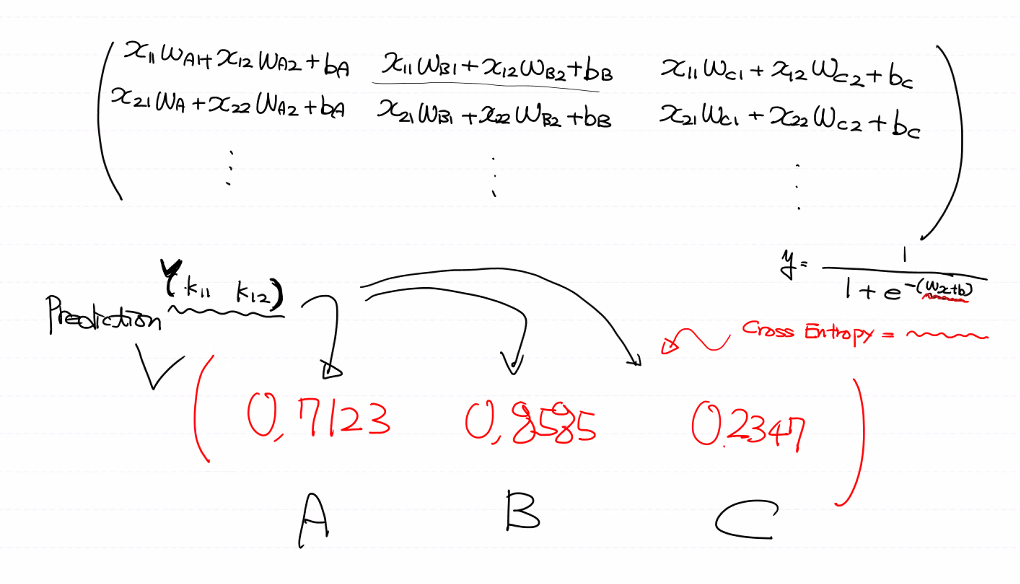 x₁₁ W_A1 + x₁₂ W_A2 + b_A x₁₁ W_B1 + x₁₂ W_B2 + b_B x₁₁ W_C1 + x₁₂ W_C2 + b_C
x₂₁ W_A + x₂₂ W_A2 + b_A x₂₁ W_B1 + x₂₂ W_B2 + b_B x₂₁ W_C1 + x₂₂ W_C2 + b_C
⋮ ⋮ ⋮
y = 1 / (1 + e^-(Wx+b))
(k₁₁ k₁₂)
Prediction
Cross Entropy =
(0,7123 0,8585 0.2347)
A B C